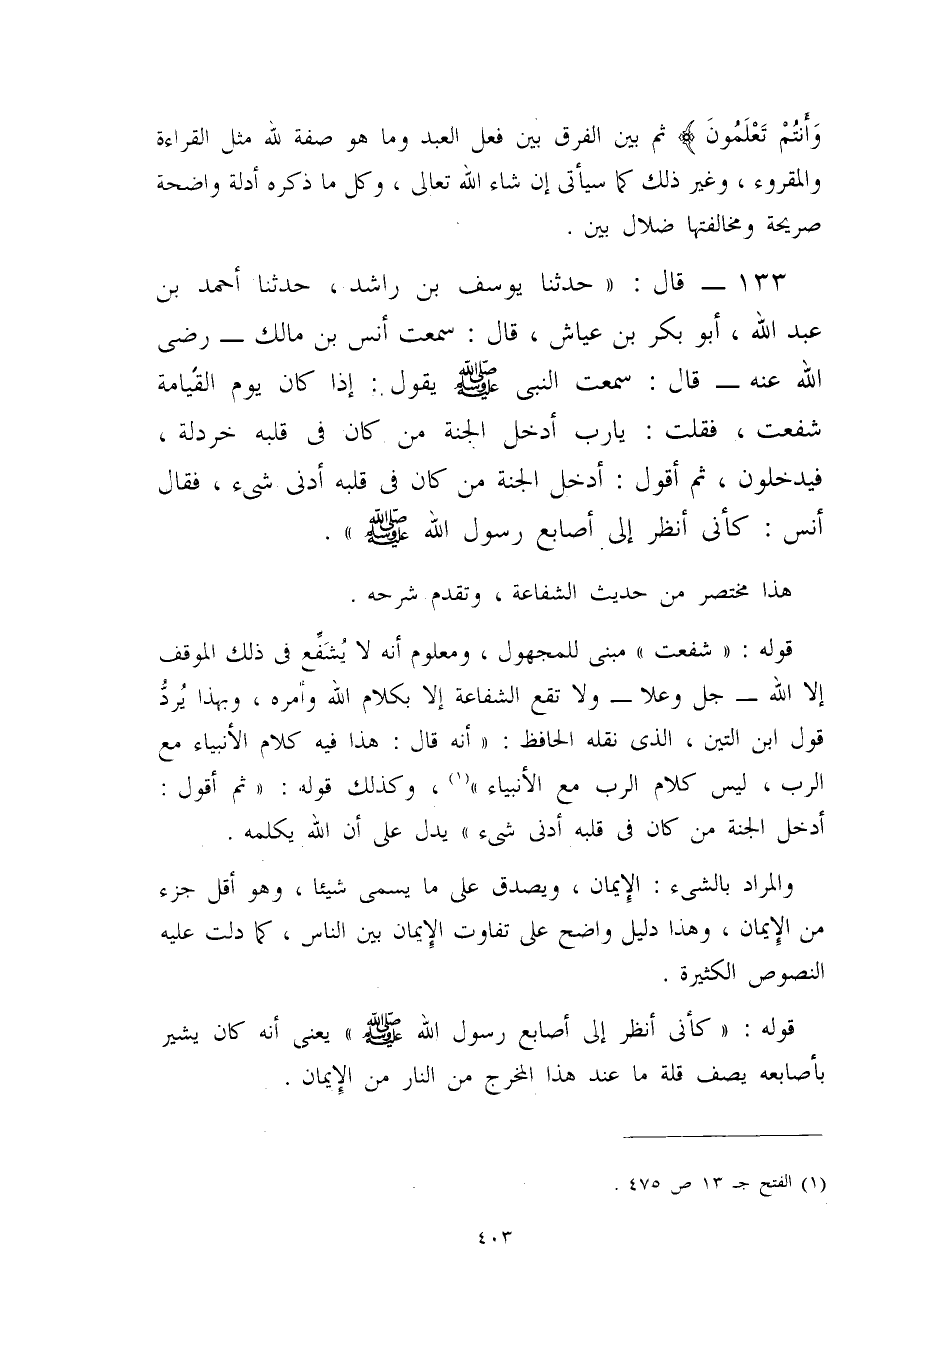 وَأَنتُمْ تَعْلَمُونَ ﴾ ثم بين الفرق بين فعل العبد وما هو صفة لله مثل القراءة
والمقروء ، وغير ذلك كما سيأتى إن شاء الله تعالى ، وكل ما ذكره أدلة واضحة
صريحة ومخالفتها ضلال بين .
١٣٣ ــ قال : « حدثنا يوسف بن راشد ، حدثنا أحمد بن
عبد الله ، أبو بكر بن عياش ، قال : سمعت أنس بن مالك ــ رضى
الله عنه ــ قال : سمعت النبى ﷺ يقول : إذا كان يوم القيامة
شفعت ، فقلت : يارب أدخل الجنة من كان فى قلبه خردلة ،
فيدخلون ، ثم أقول : أدخل الجنة من كان فى قلبه أدنى شىء ، فقال
أنس : كأنى أنظر إلى أصابع رسول الله ﷺ » .
هذا مختصر من حديث الشفاعة ، وتقدم شرحه .
قوله : « شفعت » مبنى للمجهول ، ومعلوم أنه لا يُشَفِّع فى ذلك الموقف
إلا الله ــ جل وعلا ــ ولا تقع الشفاعة إلا بكلام الله وأمره ، وبهذا يُردُّ
قول ابن التين ، الذى نقله الحافظ : « أنه قال : هذا فيه كلام الأنبياء مع
الرب ، ليس كلام الرب مع الأنبياء »(١) ، وكذلك قوله : « ثم أقول :
أدخل الجنة من كان فى قلبه أدنى شىء » يدل على أن الله يكلمه .
والمراد بالشىء : الإيمان ، ويصدق على ما يسمى شيئا ، وهو أقل جزء
من الإيمان ، وهذا دليل واضح على تفاوت الإيمان بين الناس ، كما دلت عليه
النصوص الكثيرة .
قوله : « كأنى أنظر إلى أصابع رسول الله ﷺ » يعنى أنه كان يشير
بأصابعه يصف قلة ما عند هذا المخرج من النار من الإيمان .
(١) الفتح جـ ١٣ ص ٤٧٥ .
٤٠٣